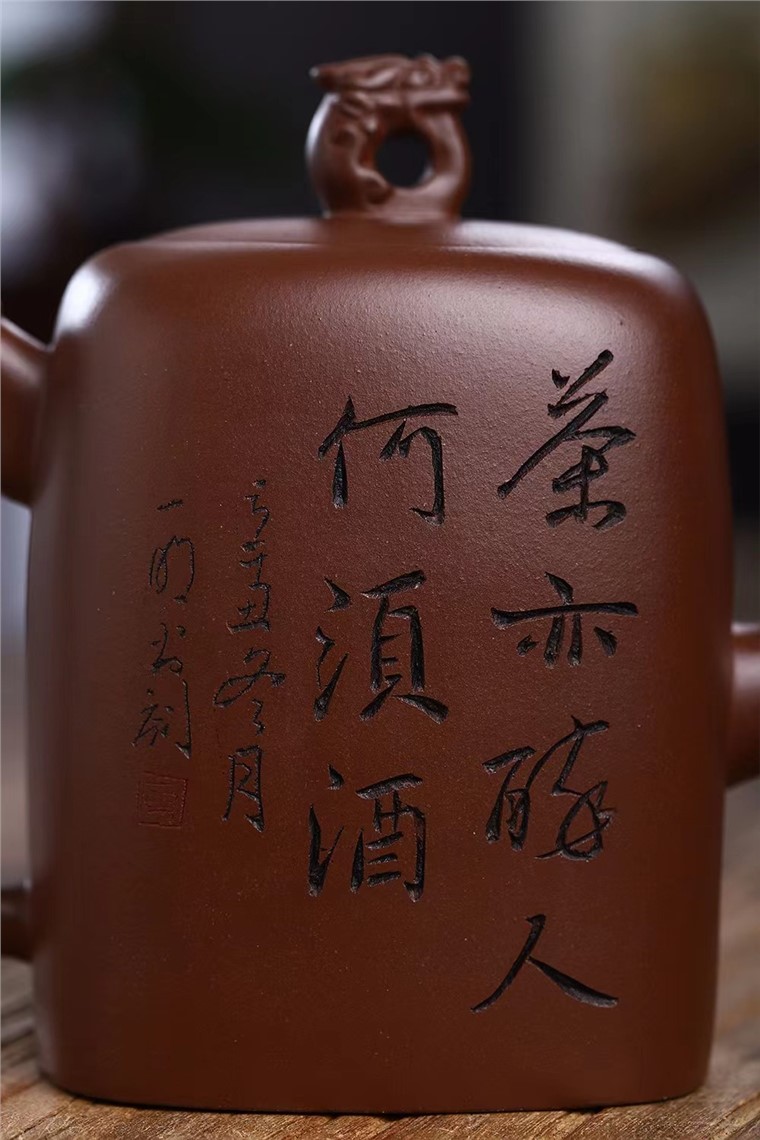 茶亦醉人
何须酒
于辛丑冬月
一明书刻